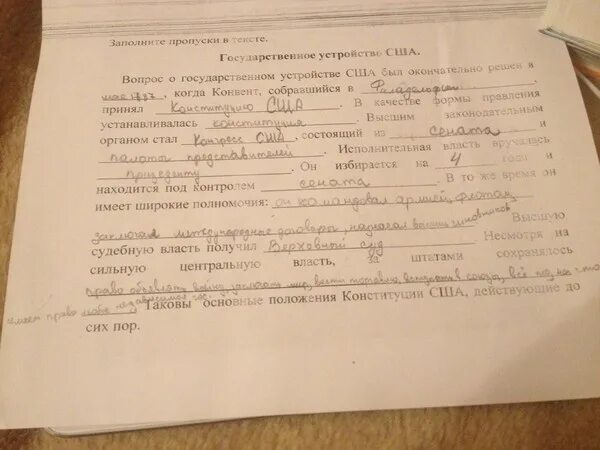 Заполните пропуски в тексте.
Государственное устройство США.
Вопрос о государственном устройстве США был окончательно решен в
мае 1787, когда Конвент, собравшийся в Филадельфии,
принял Конституцию США. В качестве формы правления
устанавливалась конституция. Высшим законодательным
органом стал Конгресс США, состоящий из сената и
палаты представителей. Исполнительная власть вручалась
президенту. Он избирается на 4 года и
находится под контролем сената. В то же время он
имеет широкие полномочия: он командовал армией, флотом,
заключал международные договоры, назначал высших чиновников. Высшую
судебную власть получил Верховный суд. Несмотря на
сильную центральную власть, за штатами сохранялось
право объявлять войну, заключать мир, вести торговлю, вступать в союзы, всё на что
имеет право любое независимое гос. Таковы основные положения Конституции США, действующие до
сих пор.